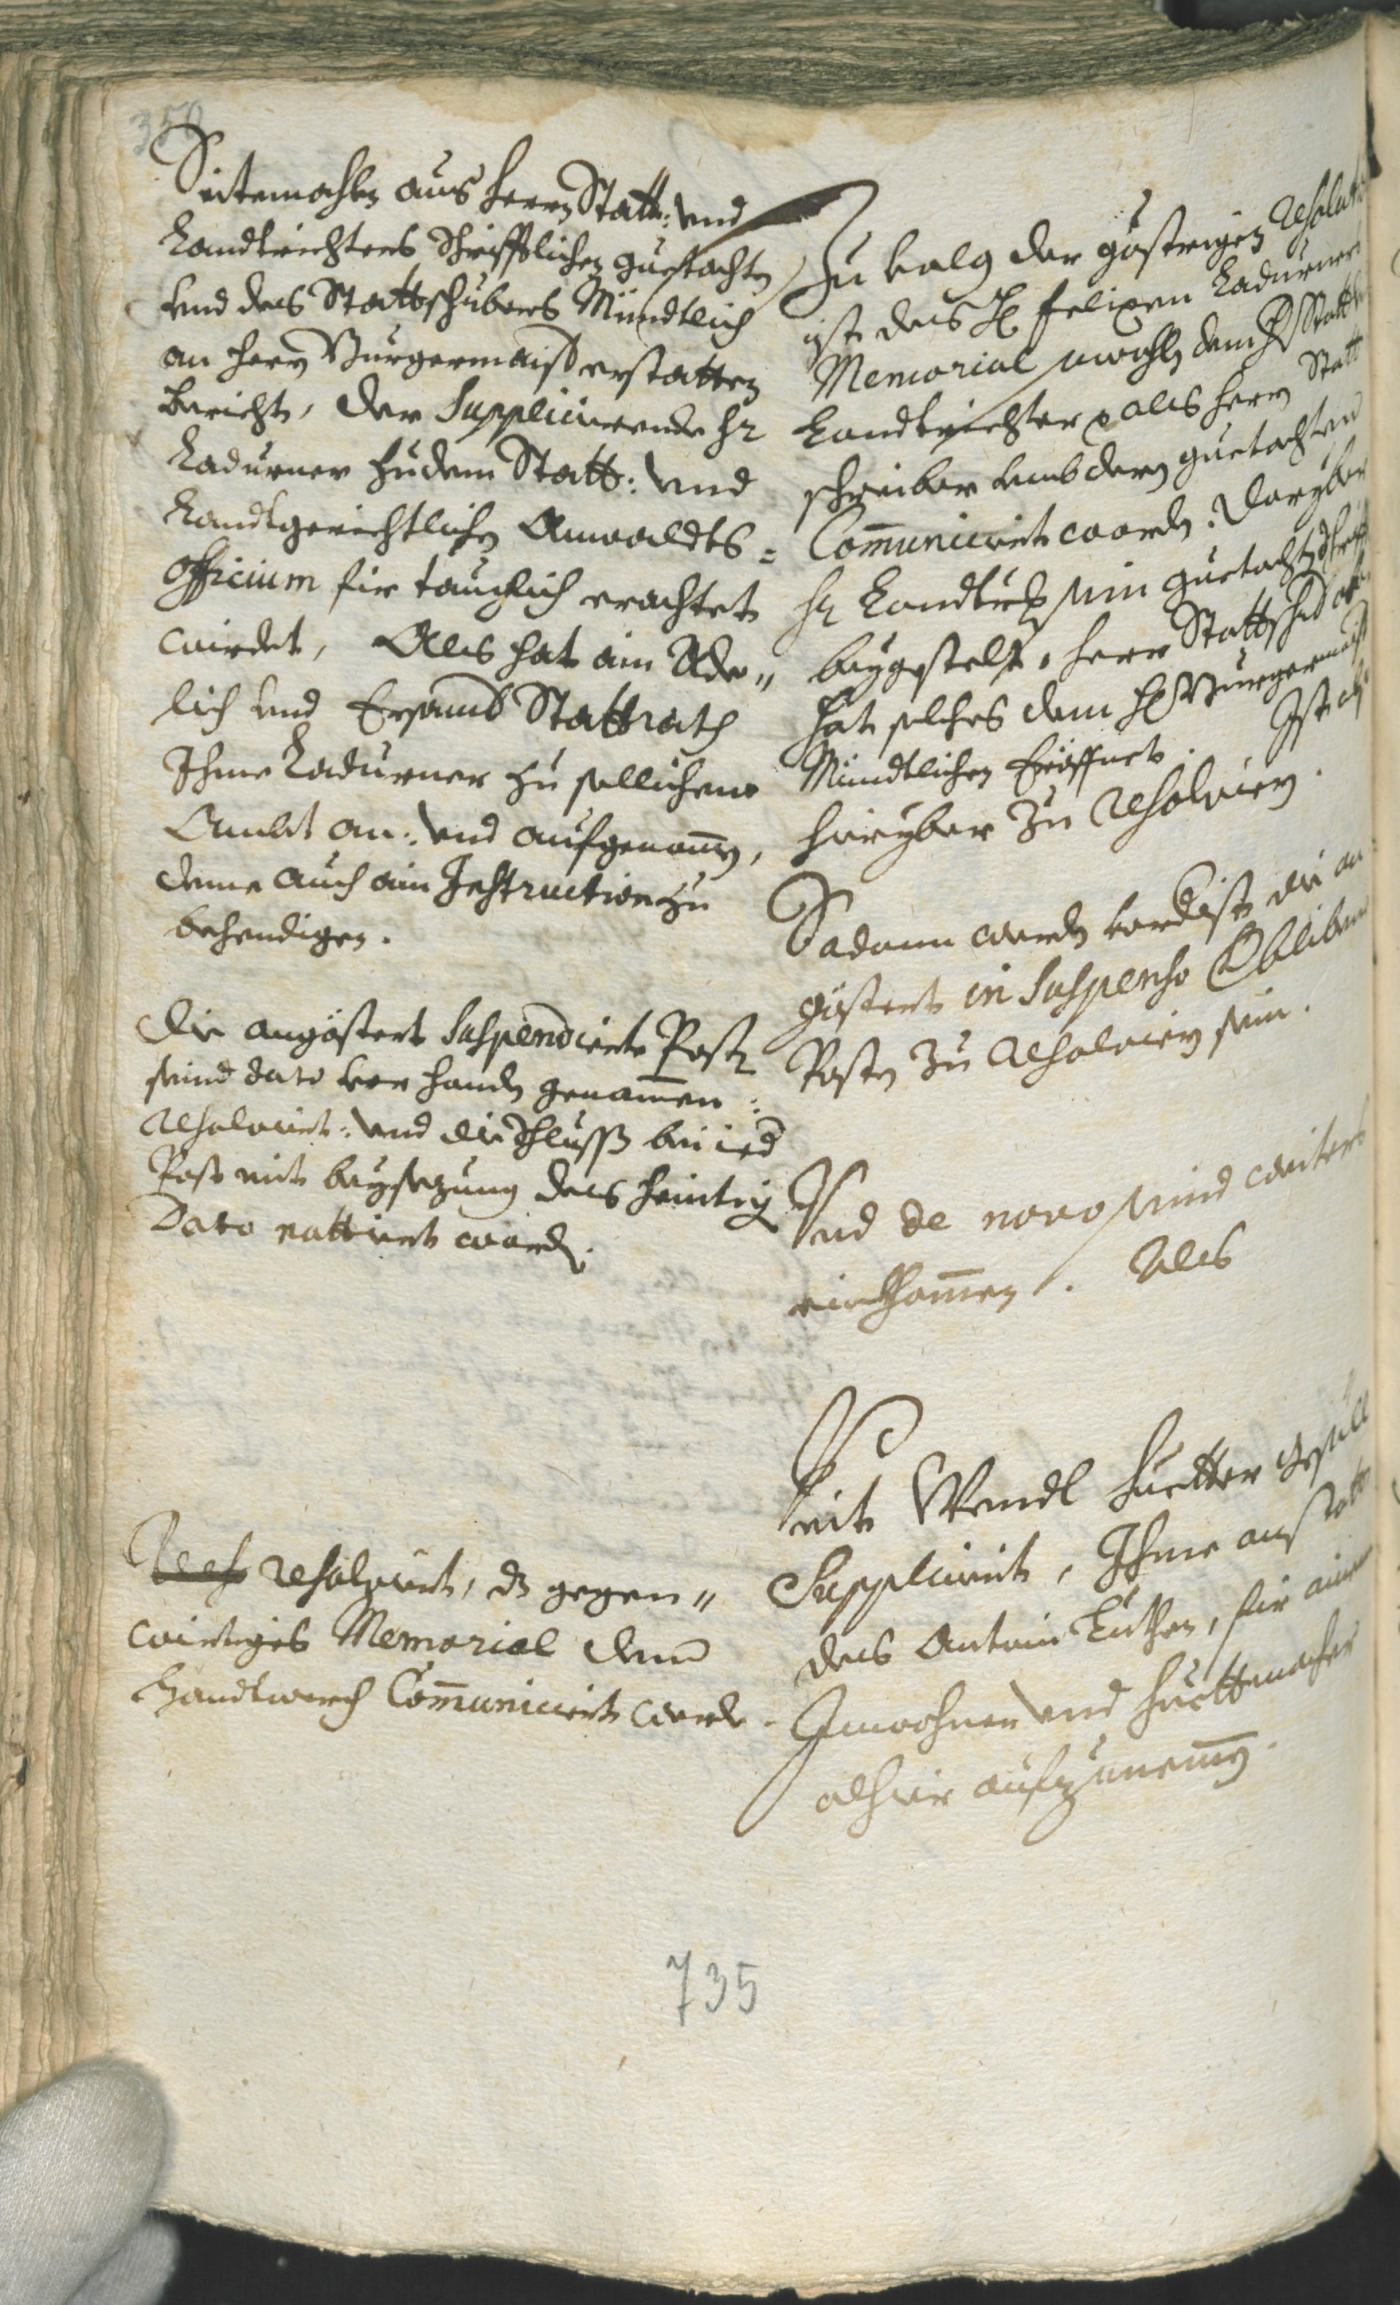 350
Seitemahln aus herrn Statt: vnd
Landtrichters Schrifftlichen guetachtn
vnd des Stattschribers Mündtlich
an herrn Burgermaister erstatten
bericht, der Supplicierende Hr
Ladurner zu dem Statt: vnd
Landtgerichtlichen Anwaldts=
Officium für tauglich erachtet
wirdet, Als hat ain Ade„
lich vnd Ersamb Stattrath
Ihme Ladurner zu sollichem
Ambt an: vnd aufgenomen,
deme auch ain Instruction zu
behendigen.
Die angöstert Suspendierte Postn
seind dato vor handn genommen:
Resolviert: vnd die Schluss bei ied
Post mit beysezung des heintig
Dato nottiert wordn.
Resolviert, dz gegen„
wirtiges Memorial dem
Handtwerch Communiciert werde.
Zu volg der göstrigen Resolution
ist des H: Felixen Ladurners
Memorial sowohln dem H: Statt
Landtrichter, als herrn Statt
schreiber vmb dern guetachten
Communiciert wordn. Daryber
Hr Landtrichter sein guetachtn Schrifft
beygestelt, herr Stattsch
hat solches dem H: Burgermaister
Mündtlichen Eröffnet. Ist also
hieryber Zu Resolviern.
Sodann werdn vordist die an
göstert in Suspenso Verbliben
Postn Zu Resolviern sein.
Vnd de novo seind weiters
einkhommen. Als
Veit Wendl Huetter gsöll
Suppliciert, Ihme anstatt
des Antoni Luthen, für ainen
Inwohner vnd Huettmacher
alhier aufzunemen.
735